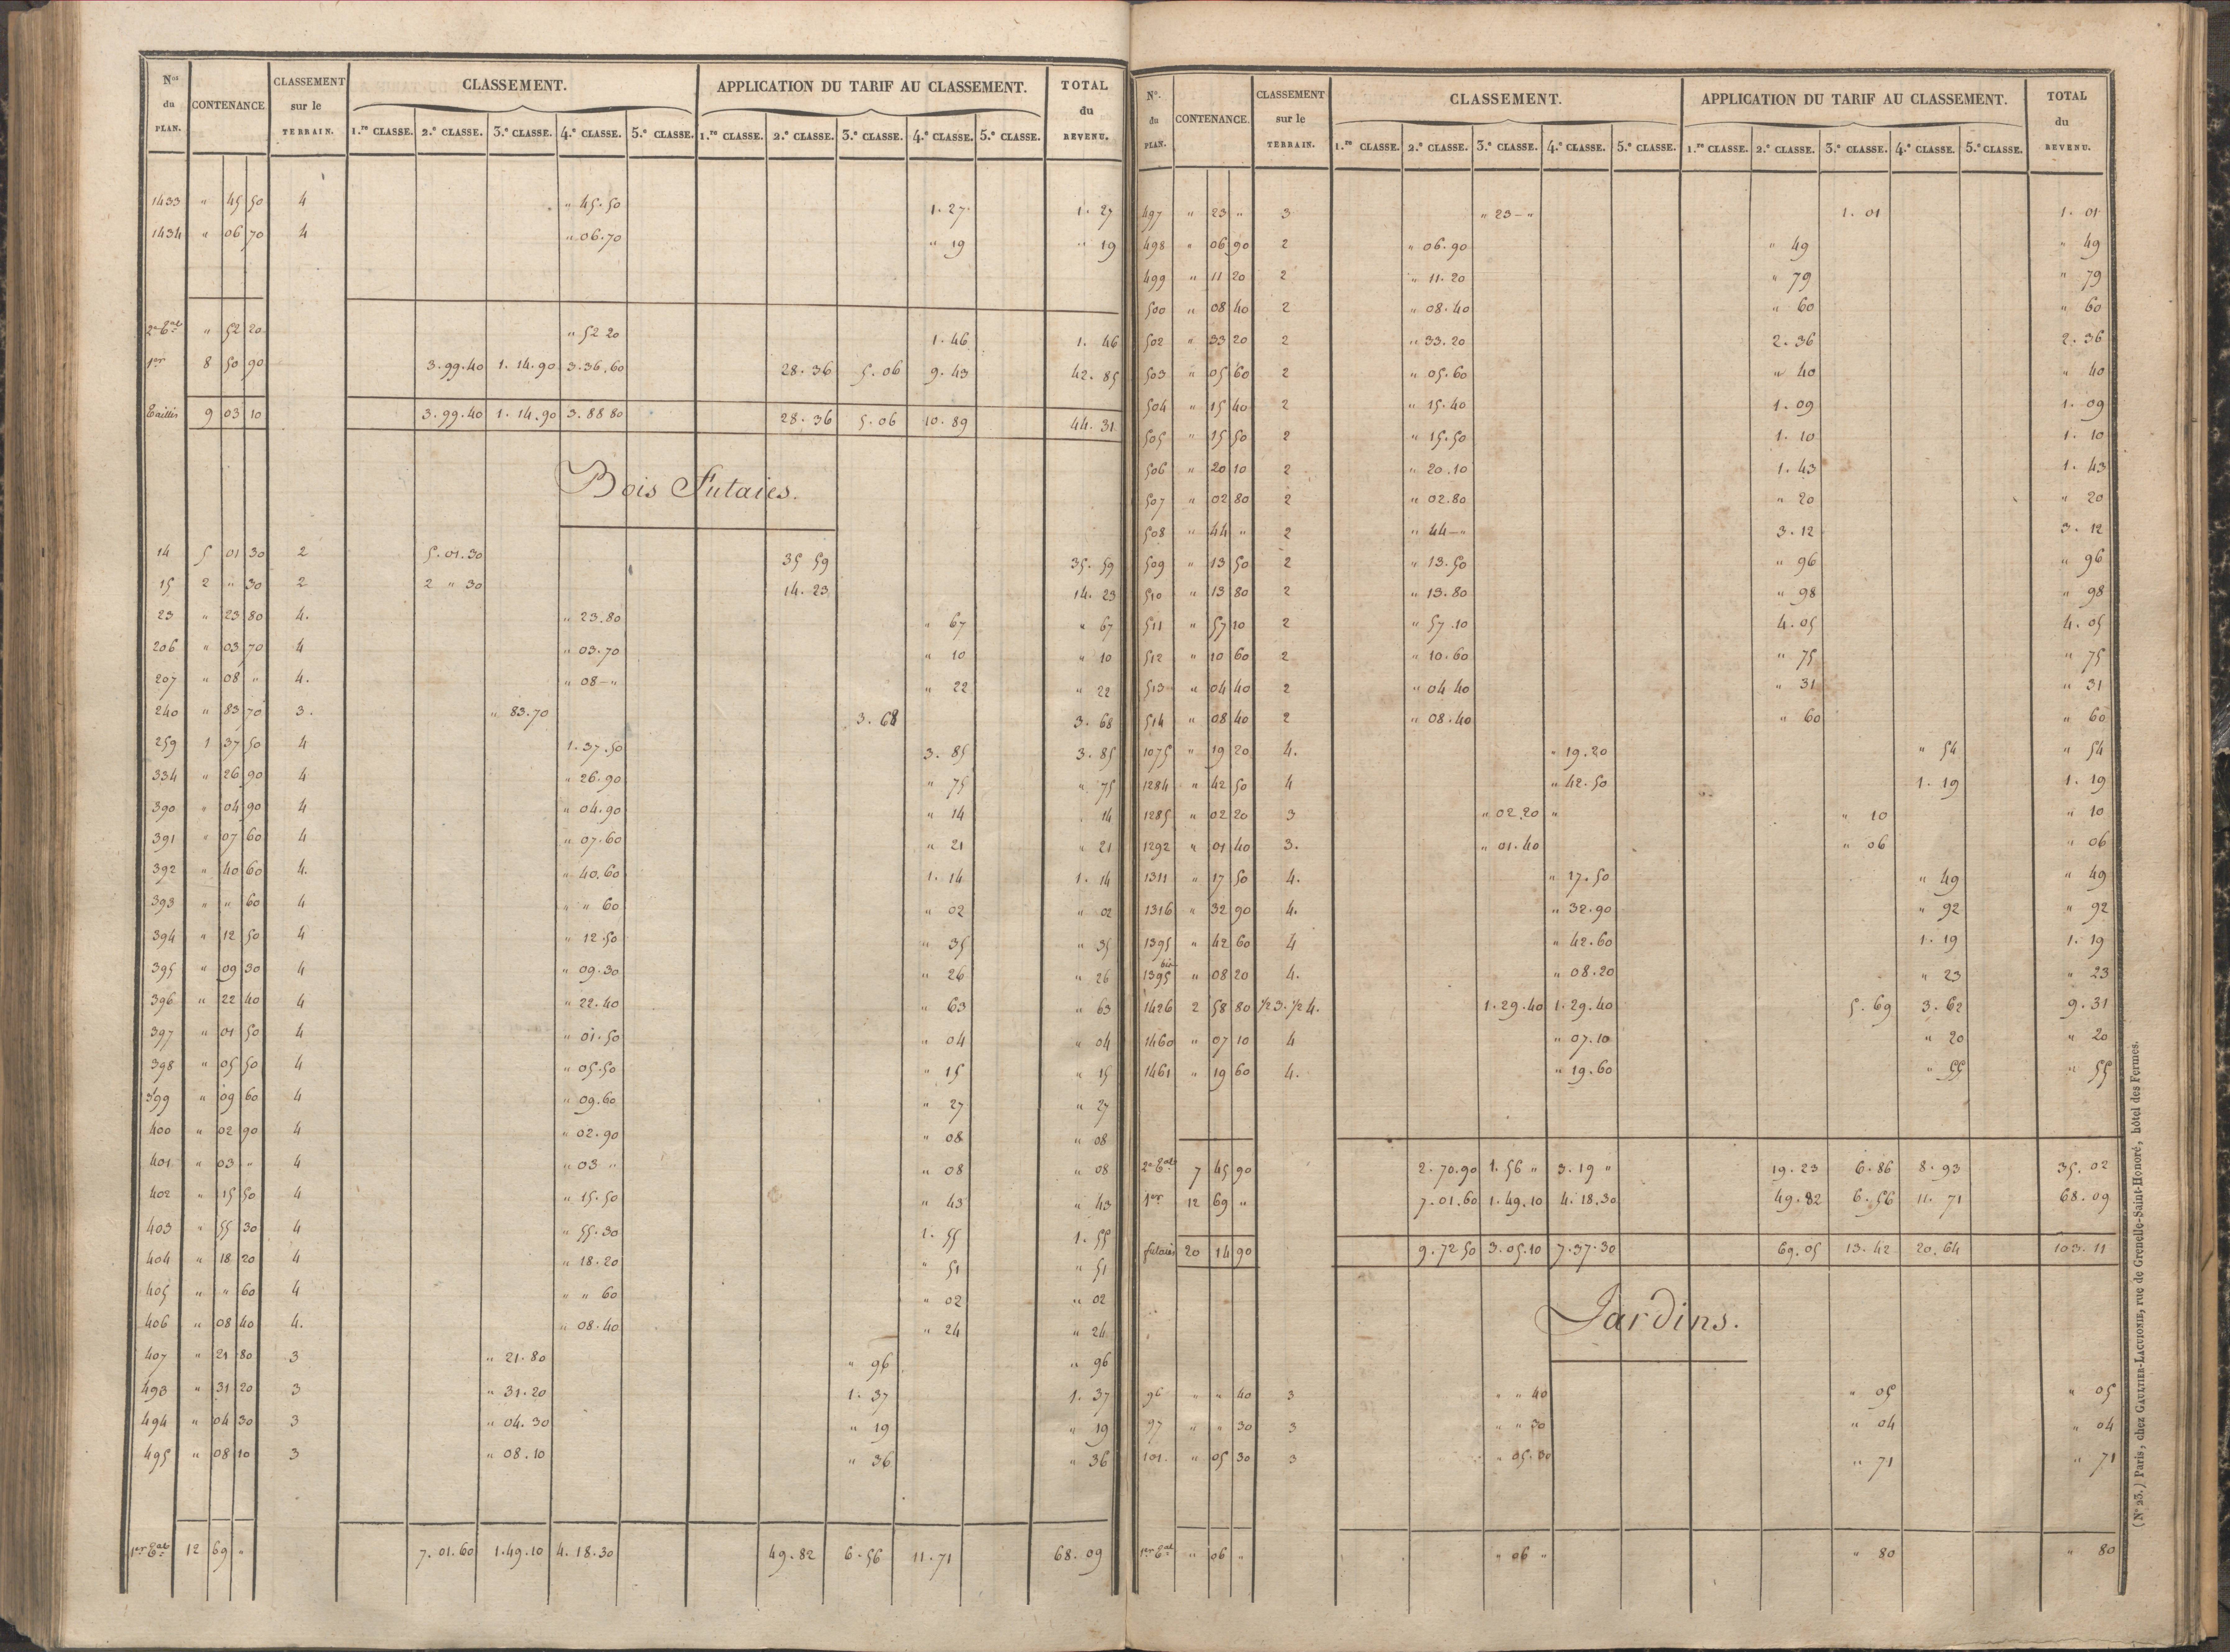 Nos du PLAN. CONTENANCE CLASSEMENT sur le TERRAIN. CLASSEMENT. APPLICATION DU TARIF AU CLASSEMENT. TOTAL du REVENU.
1.re CLASSE. 2.e CLASSE. 3.e CLASSE. 4.e CLASSE. 5.e CLASSE. 1.re CLASSE. 2.e CLASSE. 3.e CLASSE. 4.e CLASSE. 5.e CLASSE.
1433 " 45 50 4 " 45.50 1.27 1.27
1434 " 06 70 4 " 06.70 " 19 " 19
2e Tal " 52 20 " 52 20 1.46 1.46
1er 8 50 90 3.99.40 1.14.90 3.36.60 28.36 5.06 9.43 42.85
Taillis 9 03 10 3.99.40 1.14.90 3.88 80 28.36 5.06 10.89 44.31
Bois Futaies.
14 5 01 30 2 5.01.30 35 59 35.59
15 2 " 30 2 2 " 30 14.23 14.23
23 " 23 80 4. " 23.80 " 67 " 67
206 " 03 70 4 " 03.70 " 10 " 10
207 " 08 " 4. " 08-" " 22 " 22
240 " 83 70 3. " 83.70 3.68 3.68
259 1 37 50 4 1.37.50 3.85 3.85
334 " 26 90 4 " 26.90 " 75 " 75
390 " 04 90 4 " 04.90 " 14 " 14
391 " 07 60 4 " 07.60 " 21 " 21
392 " 40 60 4. " 40.60 1.14 1.14
393 " " 60 4 " " 60 " 02 " 02
394 " 12 50 4 " 12.50 " 35 " 35
395 " 09 30 4 " 09.30 " 26 " 26
396 " 22 40 4 " 22.40 " 63 " 63
397 " 01 50 4 " 01.50 " 04 " 04
398 " 05 50 4 " 05.50 " 15 " 15
399 " 09 60 4 " 09.60 " 27 " 27
400 " 02 90 4 " 02.90 " 08 " 08
401 " 03 " 4 " 03 " " 08 " 08
402 " 15 50 4 " 15.50 " 43 " 43
403 " 55 30 4 " 55.30 1.55 1.55
404 " 18 20 4 " 18.20 " 51 " 51
405 " " 60 4 " " 60 " 02 " 02
406 " 08 40 4. " 08.40 " 24 " 24
407 " 21 80 3 " 21.80 " 96 " 96
493 " 31 20 3 " 31.20 1.37 1.37
494 " 04 30 3 " 04.30 " 19 " 19
495 " 08 10 3 " 08.10 " 36 " 36
1er Tal 12 69 " 7.01.60 1.49.10 4.18.30 49.82 6.56 11.71 68.09
No. du PLAN. CONTENANCE. CLASSEMENT sur le TERRAIN. CLASSEMENT. APPLICATION DU TARIF AU CLASSEMENT. TOTAL du REVENU.
1.re CLASSE. 2.e CLASSE. 3.e CLASSE. 4.e CLASSE. 5.e CLASSE. 1.re CLASSE. 2.e CLASSE. 3.e CLASSE. 4.e CLASSE. 5.e CLASSE.
497 " 23 " 3 " 23-" 1.01 1.01
498 " 06 90 2 " 06.90 " 49 " 49
499 " 11 20 2 " 11.20 " 79 " 79
500 " 08 40 2 " 08.40 " 60 " 60
502 " 33 20 2 " 33.20 2.36 2.36
503 " 05 60 2 " 05.60 " 40 " 40
504 " 15 40 2 " 15.40 1.09 1.09
505 " 15 50 2 " 15.50 1.10 1.10
506 " 20 10 2 " 20.10 1.43 1.43
507 " 02 80 2 " 02.80 " 20 " 20
508 " 44 " 2 " 44-" 3.12 3.12
509 " 13 50 2 " 13.50 " 96 " 96
510 " 13 80 2 " 13.80 " 98 " 98
511 " 57 10 2 " 57.10 4.05 4.05
512 " 10 60 2 " 10.60 " 75 " 75
513 " 04 40 2 " 04 40 " 31 " 31
514 " 08 40 2 " 08.40 " 60 " 60
1075 " 19 20 4. " 19.20 " 54 " 54
1284 " 42 50 4 " 42.50 1.19 1.19
1285 " 02 20 3 " 02.20 " " 10 " 10
1292 " 01 40 3. " 01.40 " 06 " 06
1311 " 17 50 4. " 17.50 " 49 " 49
1316 " 32 90 4. " 32.90 " 92 " 92
1395 " 42 60 4 " 42.60 1.19 1.19
1395 bis " 08 20 4. " 08.20 " 23 " 23
1426 2 58 80 1/2 3. 1/2 4. 1.29.40 1.29.40 5.69 3.62 9.31
1460 " 07 10 4 " 07.10 " 20 " 20
1461 " 19 60 4. " 19.60 " 55 " 55
2e Tal 7 45 90 2.70.90 1.56 " 3.19 " 19.23 6.86 8.93 35.02
1er 12 69 " 7.01.60 1.49.10 4.18.30 49.82 6.56 11.71 68.09
futaies 20 14 90 9.72 50 3.05.10 7.37.30 69.05 13.42 20.64 103.11
Jardins.
96 " " 40 3 " " 40 " 05 " 05
97 " " 30 3 " " 30 " 04 " 04
101. " 05 30 3 " 05.30 " 71 " 71
1er Tal " 06 " " 06 " " 80 " 80
(No 23.) Paris, chez GAULTIER-LAGUIONIE, rue de Grenelle-Saint-Honoré, hôtel des Fermes.